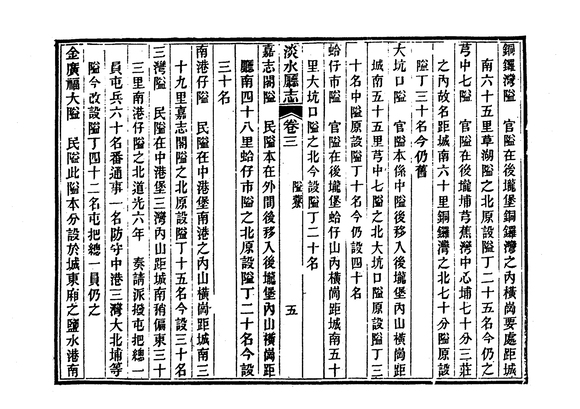 銅鑼灣隘　官隘在後壠堡銅鑼灣之內橫崗要處距城
南六十五里草湖隘之北原設隘丁二十五名今仍之
芎中七隘　官隘在後壠埔芎蕉灣中心埔七十分三莊
之內故名距城南六十里銅鑼灣之北七十分隘原設
隘丁三十名今仍舊
大坑口隘　官隘本係中隘後移入後壠堡內山橫崗距
城南五十五里芎中七隘之北大坑口隘原設隘丁三
十名中隘原設隘丁十名今仍設四十名
蛤仔市隘　官隘在後壠堡蛤仔山內橫崗距城南五十
里大坑口隘之北今設隘丁二十名
淡水廳志　卷三　隘寮　五
嘉志閣隘　民隘本在外間後移入後壠堡內山橫崗距
廳南四十八里蛤仔市隘之北原設隘丁二十名今設
三十名
南港仔隘　民隘在中港堡南港之內山橫崗距城南三
十九里嘉志閣隘之北原設隘丁十五名今設三十名
三灣隘　民隘在中港堡三灣內山距城南稍偏東三十
三里南港仔隘之北道光六年　奏請派撥屯把總一
員屯兵六十名番通事一名防守中港三灣大北埔等
隘今改設隘丁四十二名屯把總一員仍之
金廣福大隘　民隘此隘本分設於城東廂之鹽水港南